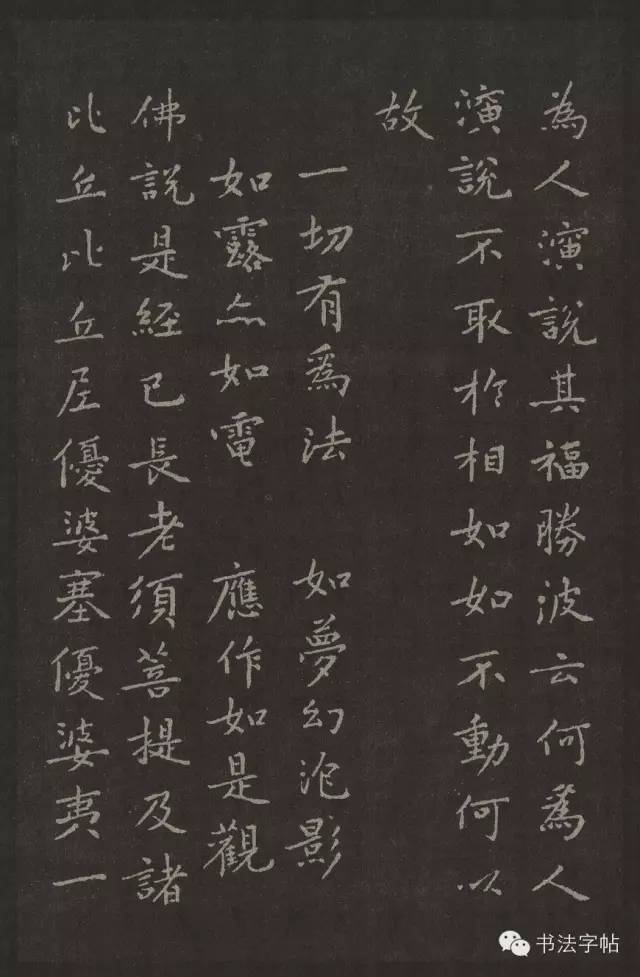 為人演說其福勝波云何為人
演說不取於相如如不動何以
故
一切有為法 如夢幻泡影
如露亦如電 應作如是觀
佛說是經已長老須菩提及諸
比丘比丘尼優婆塞優婆夷一
书法字帖